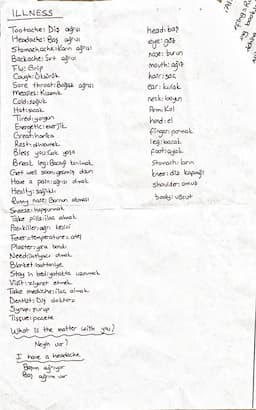 ILLNESS
Tootache: Diş ağrısı
Headache: Baş ağrısı
Stomachache: Karın ağrısı
Backache: Sırt ağrısı
Flu: Grip
Cough: Öksürük
Sore throat: Boğaz ağrısı
Measles: Kızamık
Cold: soğuk
Hot: sıcak
Tired: yorgun
Energetic: enerjik
Great: harika
Rest: dinlenmek
Bless you: Çok yaşa
Break leg: Bacağı kırılmak
Get well soon: geçmiş olsun
Have a pain: ağrısı olmak
Healthy: sağlıklı
Runny nose: Burnun akması
Sneeze: hapşurmak
Take pills: ilaç almak
Painkiller: ağrı kesici
Fever: temperature: ateş
Plaster: yara bandı
Need: ihtiyacı olmak
Blanket: battaniye
Stay in bed: yatakta uzanmak
Visit: ziyaret etmek
Take medicine: ilaç almak
Dentist: Diş doktoru
Syrup: şurup
Tissue: peçete
What is the matter with you?
Neyin var?
I have a headache
Başım ağrıyor
Baş ağrım var
head: baş
eye: göz
nose: burun
mouth: ağız
hair: saç
ear: kulak
neck: boyun
Arm: Kol
hand: el
finger: parmak
leg: bacak
foot: ayak
Stomach: karın
knee: diz kapağı
shoulder: omuz
body: vücut